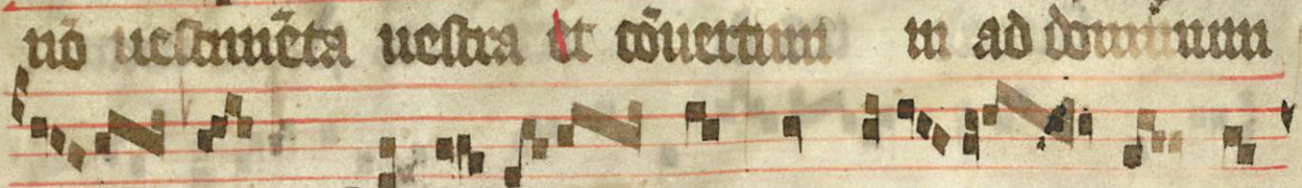 nō uestimēta uestra et cōuertim in ad dominum